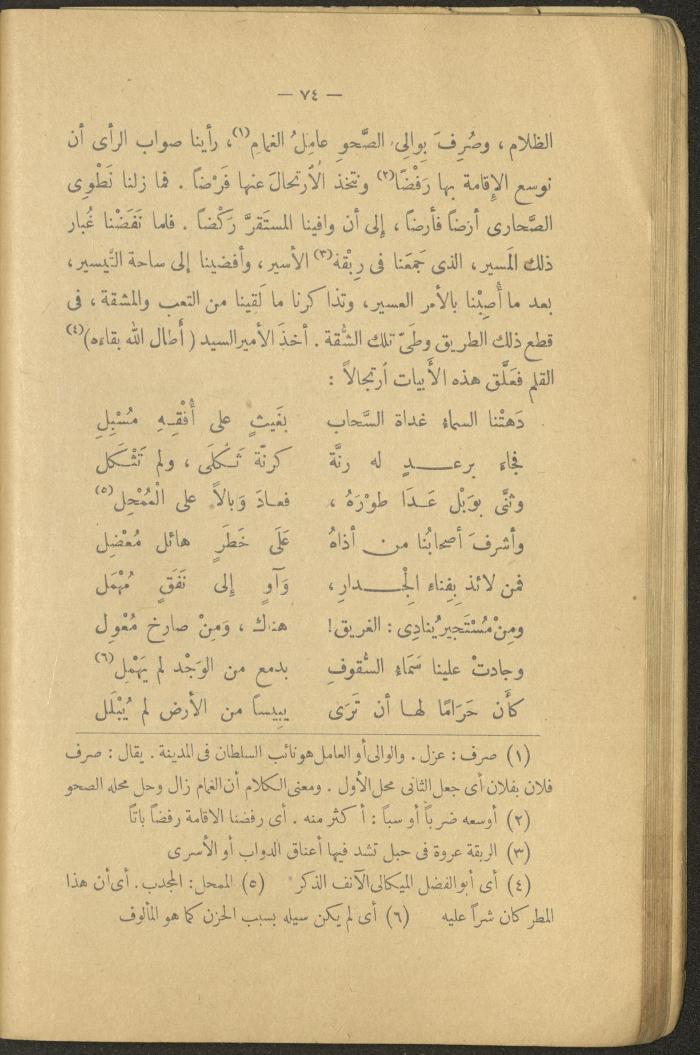 — ٧٤ —
الظلام ، وصُرِفَ بِوالِى الصَّحوِ عامِلُ الغمامِ(١)، رأينا صواب الرأى أن
نوسع الإقامة بها رَفْضًا(٢) ونتخذ الاُرتحالَ عنها فَرْضاً . فما زلنا نَطْوِى
الصَّحارى أرْضاً فأرضاً ، إلى أن وافينا المستَقرَّ رَكْضاً . فلما نَفَضْنا غُبار
ذلك المَسير ، الذى جَمَعَنا فى رِبْقة(٣) الأسير ، وأفضينا إلى ساحة التَّيسير ،
بعد ما أُصِبْنا بالأمر العسير ، وتذاكرنا ما لَقِينا من التعب والمشقة ، فى
قطع ذلك الطريق وطَىّ تلك الشُّقة . أخذَ الأميرالسيد ( أَطال الله بقاءه)(٤)
القلم فعَلَّق هذه الأَبيات اُرتجالاً :
دَهتْنا السماءُ غداةَ السَّحاب بغَيثٍ على أُفْقِهِ مُسْبِلِ
فجاءَ برعــدٍ له رنَّة كرنّة ثَكْلَى ، ولم تَثْكَل
وثنَّى بوَبْل عَدَا طَوْرَهُ ، فعادَ وَبالاً على الْمُمْحِل(٥)
وأشرفَ أصحابُنا من أذاهُ عَلَى خَطَرٍ هائل مُعْضِل
فمن لائذ بِفِناءِ الْجِــدارِ ، وَآوٍ إِلى نَفَقٍ مُهْمَل
ومِنْ مُسْتَجيرٍ يُنادِى : الغريق! هناك ، وَمِنْ صارخٍ مُعْوِل
وجادتْ علينا سَمَاءُ السُّقوفِ بدمع من الوَجْد لم يَهْمِل(٦)
كأَن حَرَامًا لها أن تَرَى يبيساً من الأرض لم يُبْلَل
(١) صرف : عزل . والوالى أو العامل هو نائب السلطان فى المدينة . يقال : صرف
فلان بفلان أى جعل الثانى محل الأول . ومعنى الكلام أن الغمام زال وحل محله الصحو
(٢) أوسعه ضرباً أو سباً : أكثر منه . أى رفضنا الاقامة رفضاً باتاً
(٣) الربقة عروة فى حبل تشد فيها أعناق الدواب أو الأسرى
(٤) أى أبوالفضل الميكالى الآنف الذكر (٥) الممحل : المجدب . أى أن هذا
المطر كان شراً عليه (٦) أى لم يكن سيله بسبب الحزن كما هو المألوف